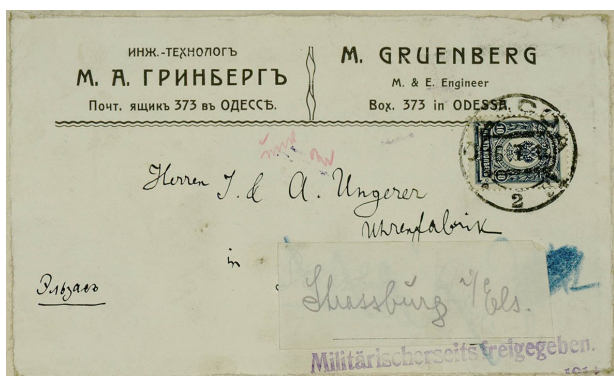 ИНЖ.-ТЕХНОЛОГЪ
М. А. ГРИНБЕРГЪ
Почт. ящикъ 373 въ ОДЕССѢ.
M. GRUENBERG
M. & E. Engineer
Box. 373 in ODESSA.
Herren J. & A. Ungerer
Uhrenfabrik
in
Strassburg i/Els.
Эльзасъ
Militärischerseits freigegeben.
2